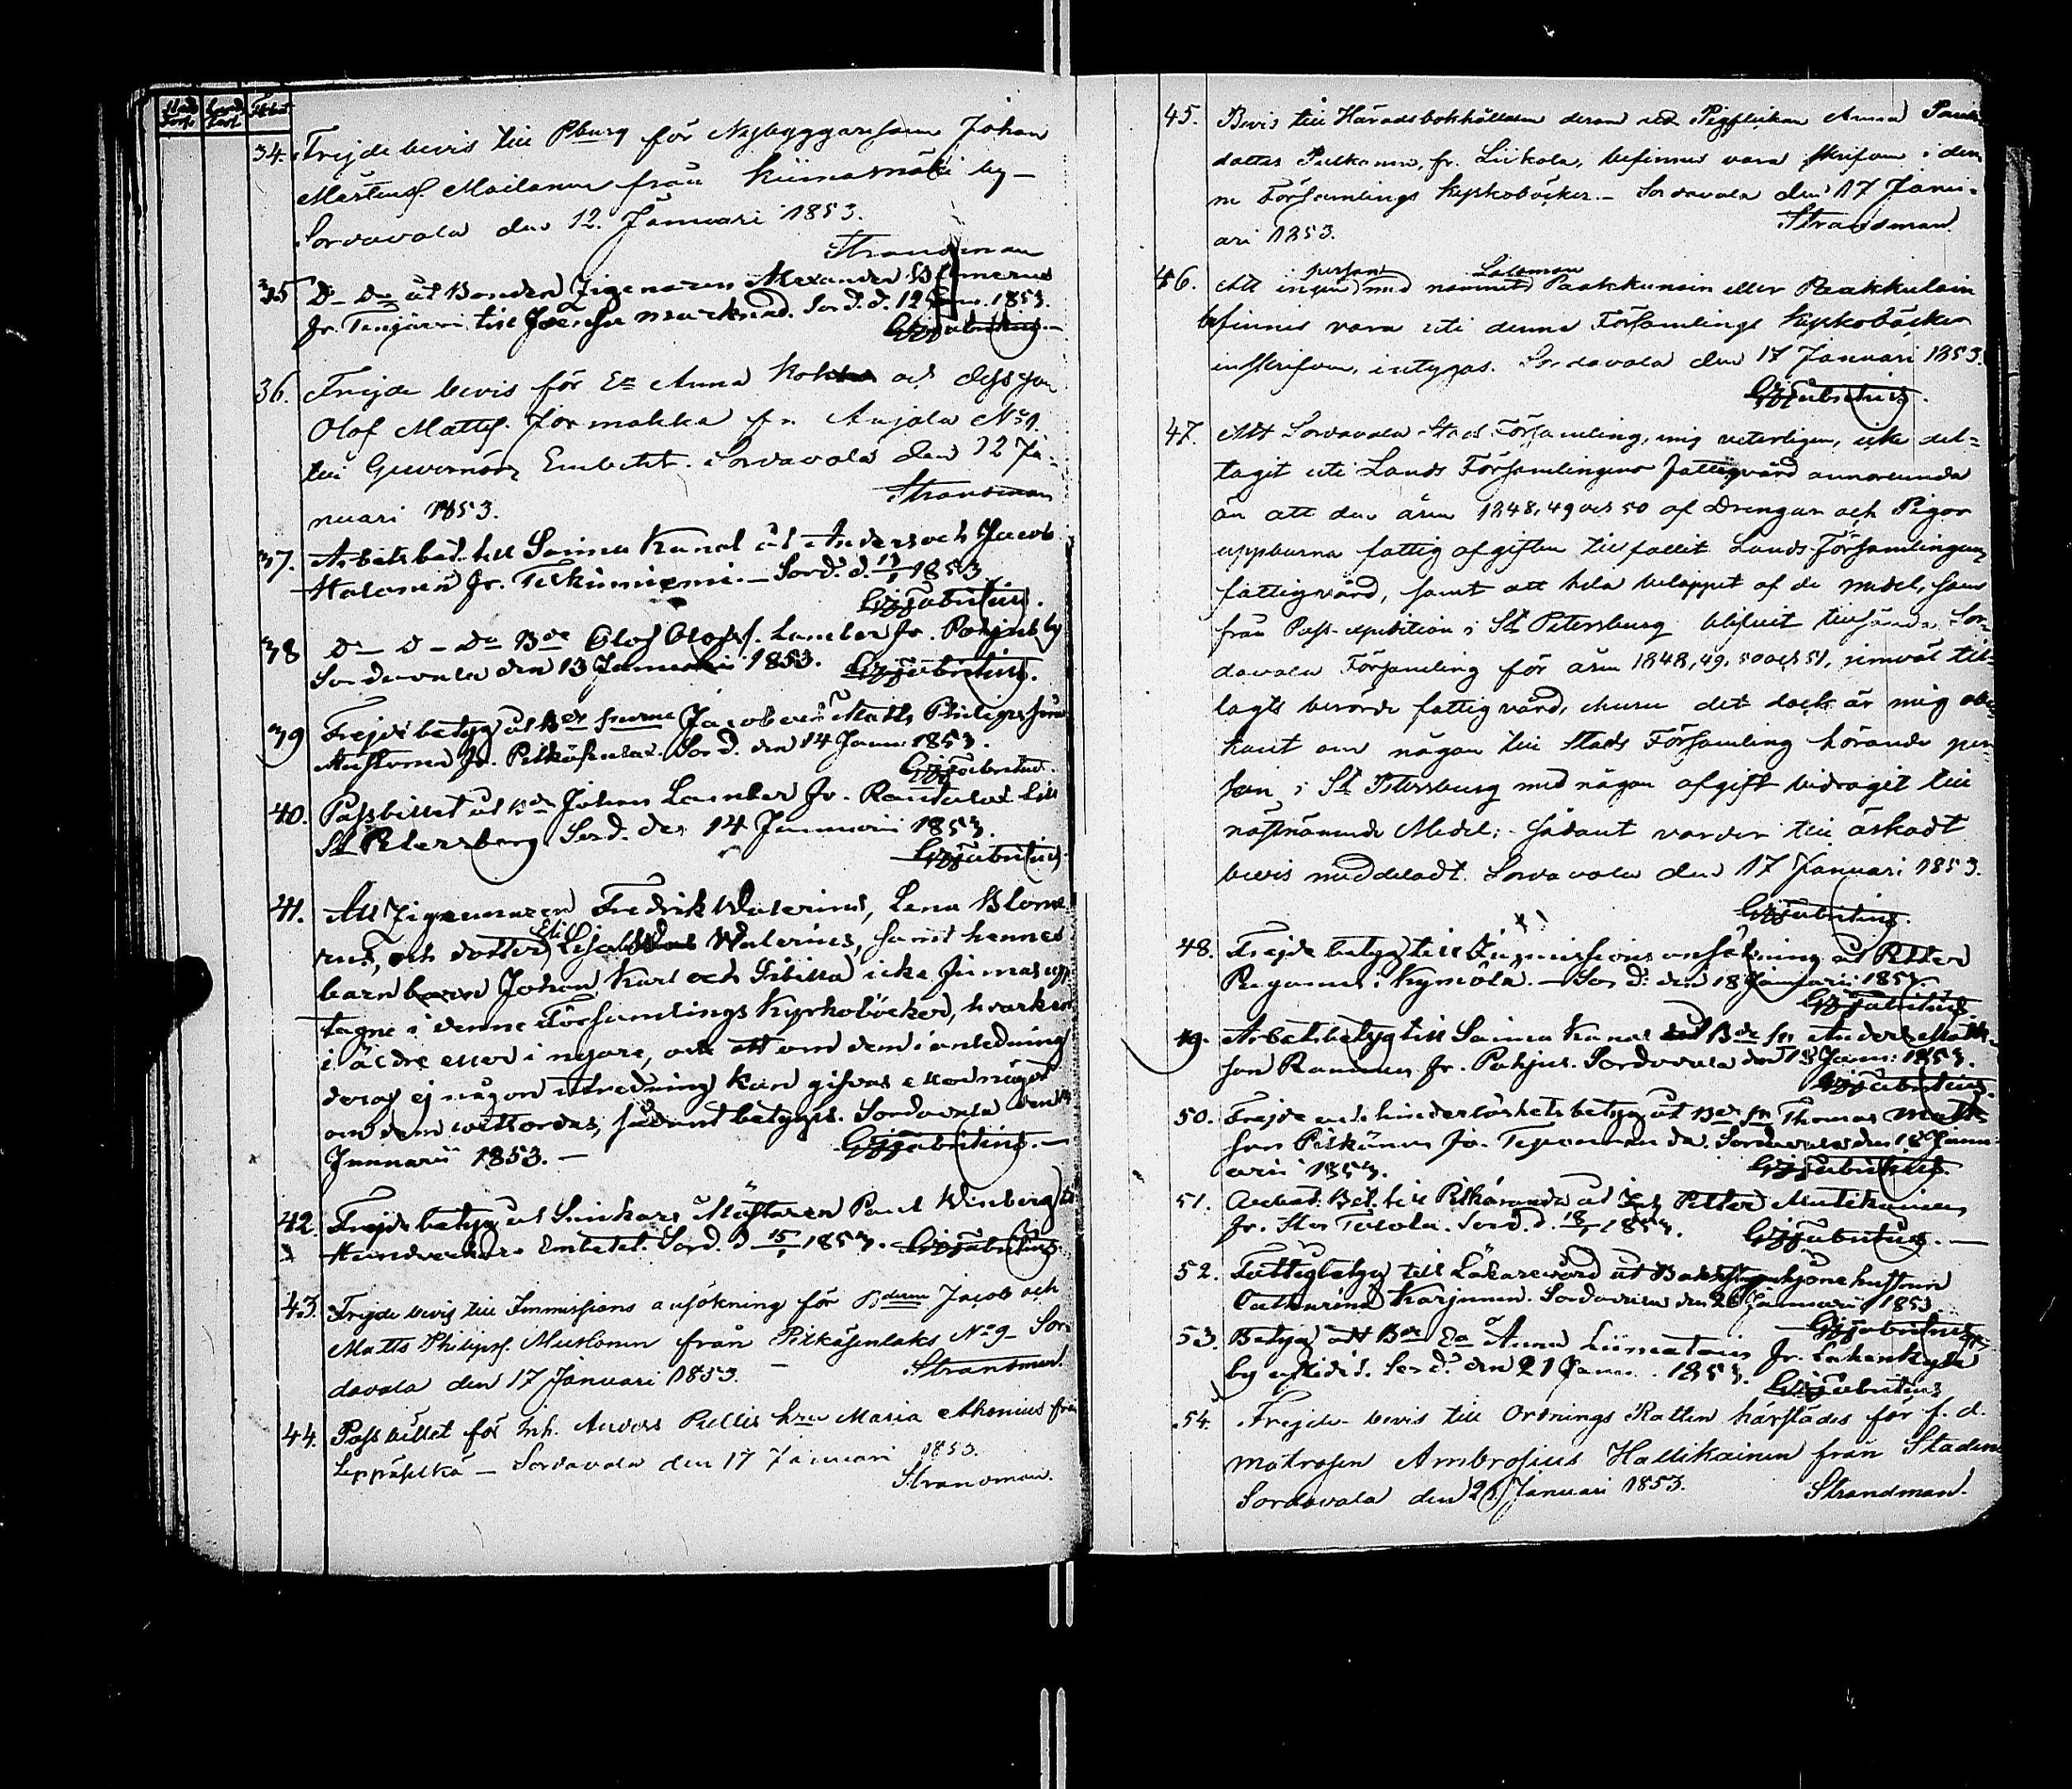 34. Frejdebevis till Pburg för Nybyggaresonen Johan
Mårtensf. Mailanen från Kiimamäki by –
Sordavala den 12. Januari 1853.
Strandman
35 Do Do åt Bonden Zigenaren Alexander Blomerus
fr. Tenjärvi till Joensu marknad. Sord. d. 12 Jan. 1853.
GJFabritius.
36. Frejdebevis för Ea Anna och dess son
Olof Mattsf. Jormakka fr. Anjala No 1.
till Guvernörs Embetet. Sordavala den 12 Ja-
nuari 1853.
Strandman
37. Arbetsbet. till Saima Kanal åt Anders och Jacob
Halonen fr. Tuokusniemi. – Sord. d. 13/1 1853
GJFabritius.
38 Do – D – Do Bde Olof Olofsf. Lamber fr. Pohjus by
Sordavala den 13 Januarii 1853. GJFabritius.
39 Frejdebetyg åt Bde sönerne Jacob och Matts Philipssöner
fr. Pitkäsenlax. Sord. den 14 Janu: 1853.
GJFabritius.
40. Passbillet åt Bde Johan Lamber fr. Rautalax till
St Petersburg Sord. den 14 Januarii 1853.
GJFabritius.
41. Att Zigenaren Fredrik Walerius, Lena Blome
rus, och dotter Lisa Walerius, samt hennes
barn barn Johan Karl och Sibilla icke finnas upp
tagne i denne Församlings Kyrkoböcker, hvarken
i äldre eller i nyare, och att om dem i anledning
deraf ej någon utredning kan gifvas eller något
om dem vitsordas, sådant betygas. Sordavala den
Januarii 1853. – GJFabritius. –
42. Frejdebetyg åt Snickare Mästaren Paul Winberg till
Handverkare Embetet. Sord. d 15/1 1853. GJFabritius
43. Frejdebevis till Immissions ansökning för Bderne Jacob och
Matts Philipsf. Mustonen från Pitkäsenlaks No 9 – Sor
davala den 17 Januari 1853. – Strandman.
44. Passbillet för Inh. Anders Pullis hru Maria Ahonius från
Leppäselkä – Sordavala den 17 Januari 1853.
Strandman.
45. Bevis till Häradsbokhållaren derom att Pigflickan Anna Pauls
dotter Pulkanen, fr. Liikola, befinnes vara skrifven i den
na Församlings Kyrkoböcker. – Sordavala den 17 Janu-
ari 1853.
Strandman.
46. Att ingen person med namnet Salomon Paakkunain eller Paakkulain
befinnes vara uti denna Församlings Kyrkoböcker
inskrifven, intygas. Sordavala den 17 Januari 1853.
GJFabritius.
47. Att Sordavala Stads Församling, mig veterligen, icke del-
tagit uti Lands Församlingens fattigvård annorlunda
än att den åren 1848, 49 och 50 af Drengar och Pigor
uppburna fattig afgiften tillfallit Lands Församlingens
fattigvård, samt att hela beloppet af de medel, som
från Pass-expedition i St Petersburg blifvit tillsända Sor-
davala Församling för åren 1848, 49, 50 och 51, jemväl til-
lagts berörde fattigvård, churu det dock är mig obe-
kant om någon till Stads Församling hörande per
son i St Petersburg med någon afgift bidragit till
nästnämnde Medel; – sådant varder till äskadt
bevis meddeladt. Sordavala den 17 Januari 1853.
GJFabritius.
48. Frejdebetyg till Immissions ansökning åt Petter
i Kymölä. – Sord: den 18 Januarii 1853.
GJFabritius
49. Arbetsbetyg till Saima Kanal åt Bde sn Anders Matts
son Raninen fr. Pohjus. Sordavala den 18 Janu: 1853.
GJFabritius.
50. Frejde och hinderlöshetsbetyg åt Bde sn Thomas Matts
son Pitkänen fr. Sordavala den 18 Janu-
arii 1853. GJFabritius.
51. Arbets Bet. till Pitkäranda åt Petter Mutikainen
fr. Stor Tulola. Sord. d. 18/1 1853. GJFabritius. –
52. Fattigbetyg till Läkarevård åt hustrun
Catharina Karjunen. Sordavala den 20 Januari 1853.
GJFabritius
53. Betyg att Bde Ea Anna Liimatain fr. Lahenkylä
by aflidit. Sord. den 21 Janu. 1853. GJFabritius
54. Frejde-bevis till Ordnings Rätten härstädes för f. d.
matrosen Ambrosius Hallikainen från Staden
Sordavala den 21 Januari 1853. Strandman.